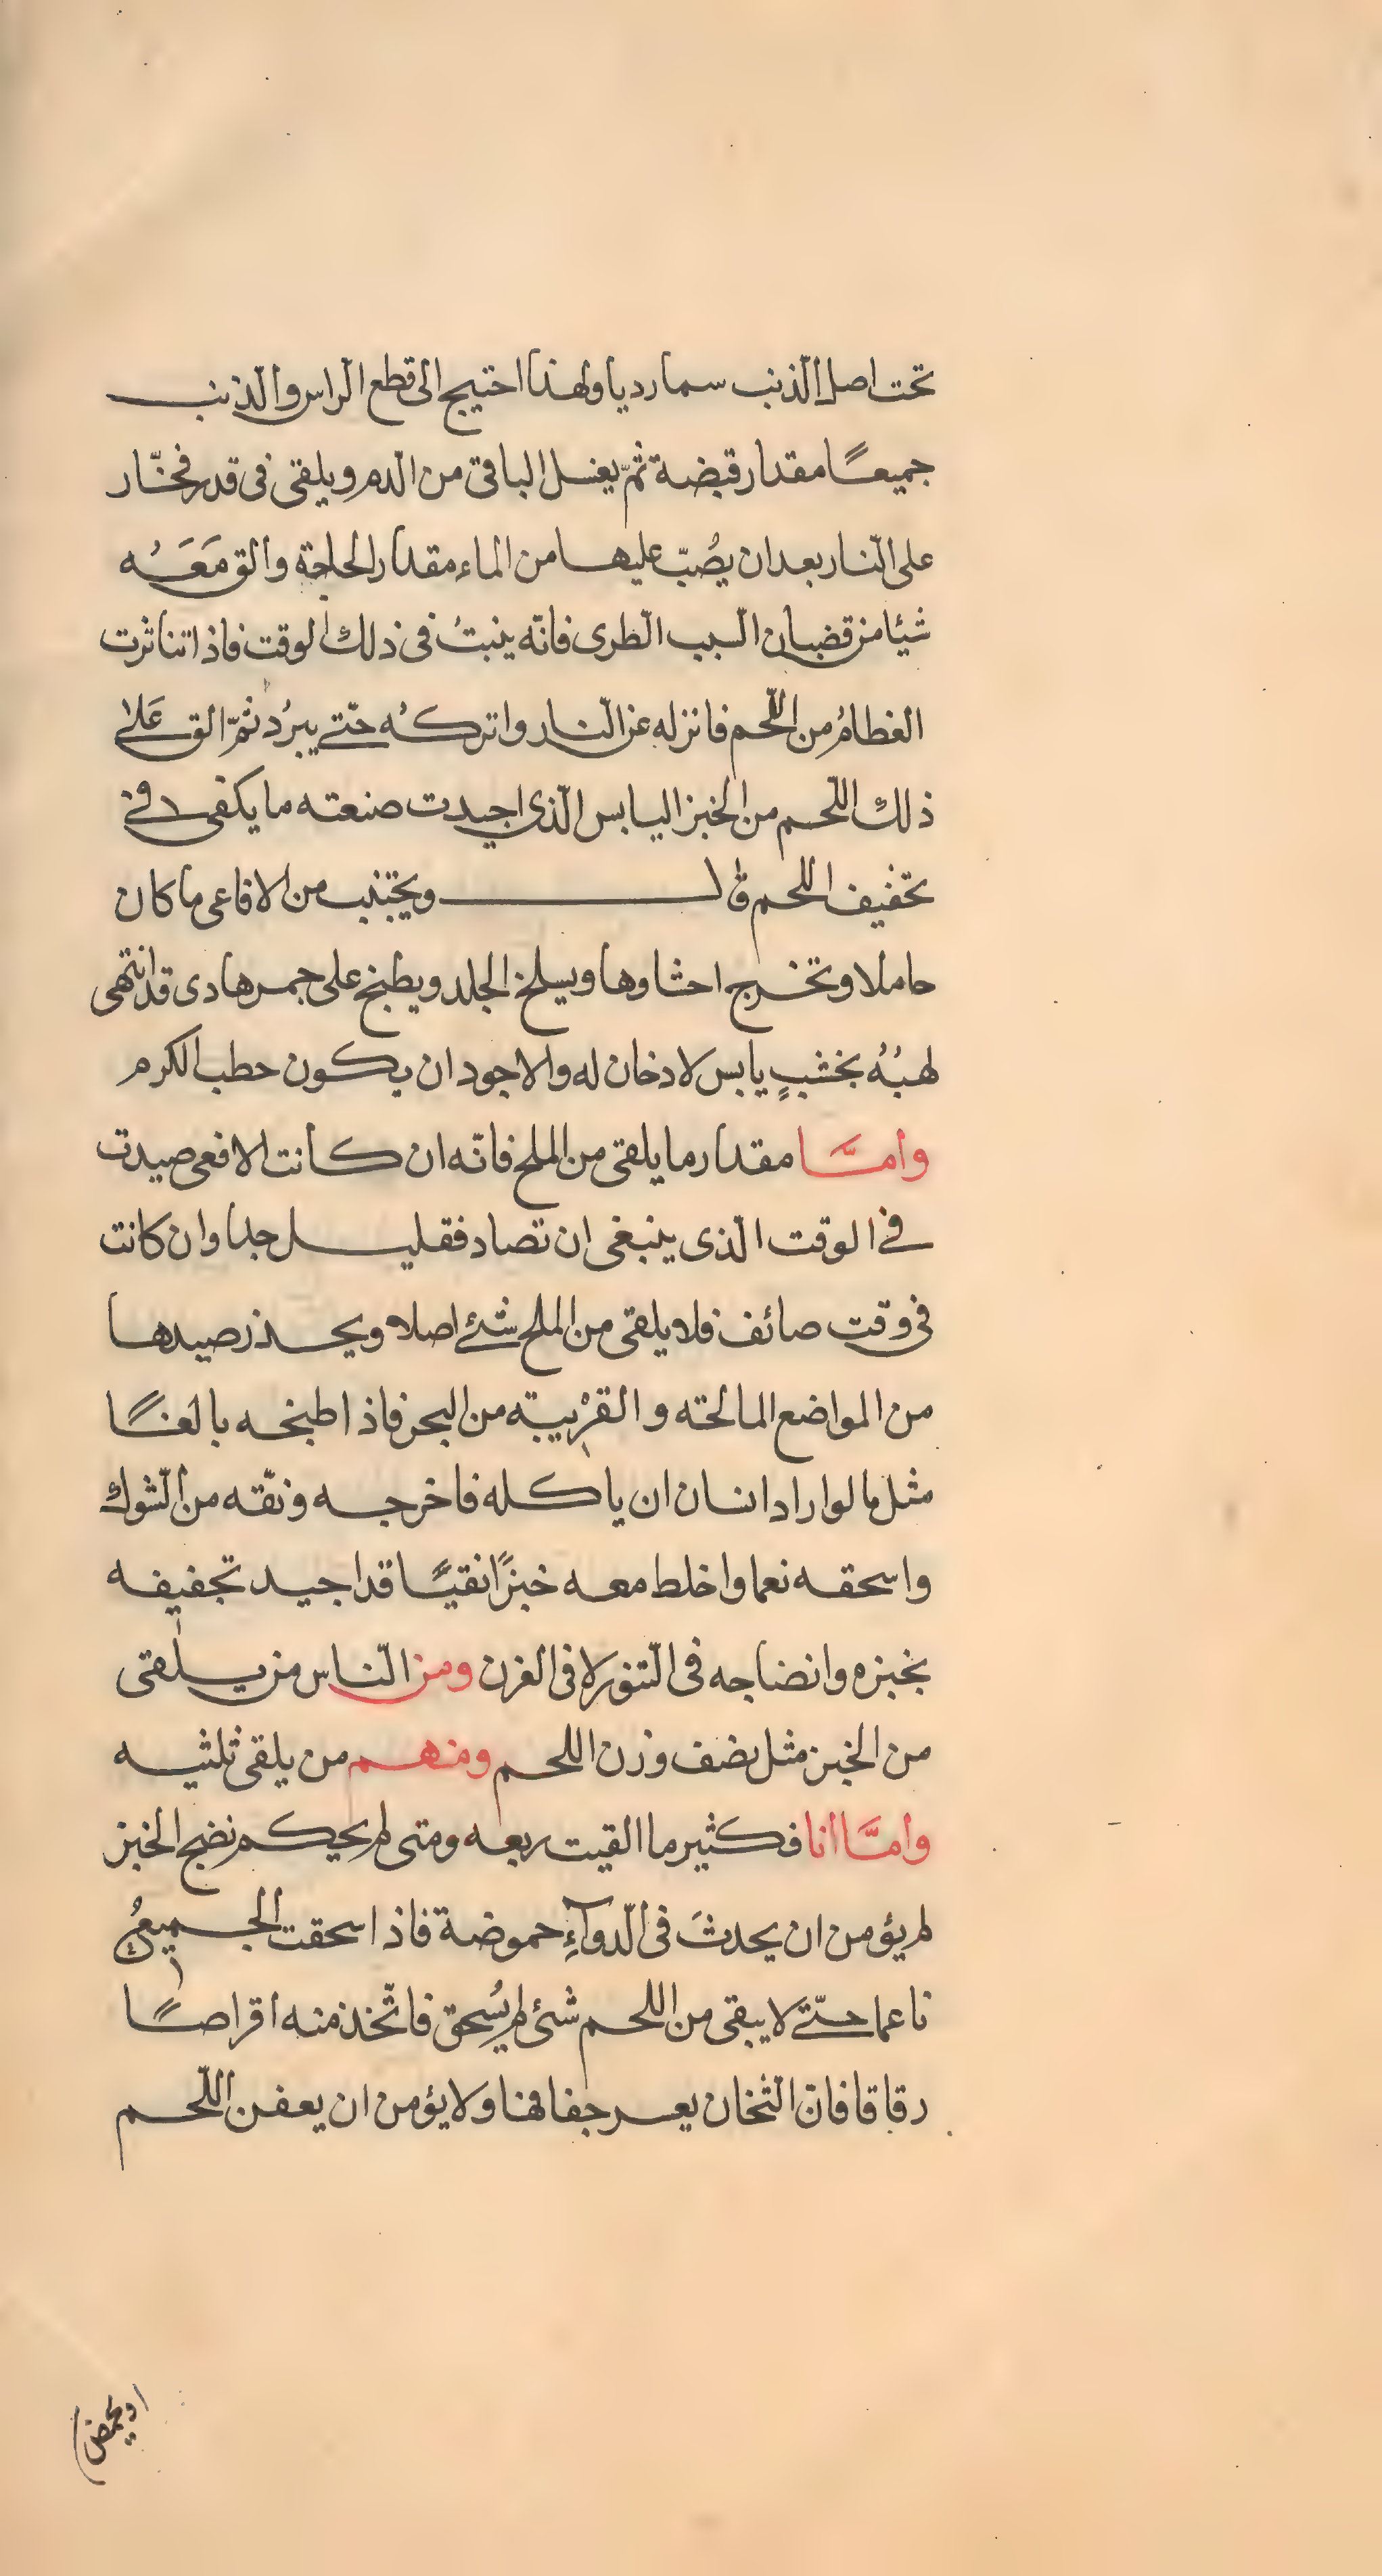 تحت اصل الّذنب سما رديا ولهذا احتيج الى قطع الّراس والّذنب
جميعًا مقدار قبضة ثمّ يغسل الباقى من الّدم ويلقى فى قدر فخّار
على الّنار بعد ان يصُبّ عليها من الماء مقدار الحاجة والق مَعَهُ
شيئا من قضبان الّسبب الّطرى فانّه ينبتُ فى ذلك الوقت فاذا تناثرت
العظامُ من اللّحم فانزله عن الّنار واتركه حتّى يبرُد ثمّ الق عَلى
ذلك اللّحم من الخبز اليابس الّذى اجيدت صنعته ما يكفى فى
تخفيف اللحم قال ويجتنب من الافاعى ما كان
حاملا وتخرج احشاوها ويسلخ الجلد ويطبخ على جمر هادى قد انتهى
لهبُهُ بخشبٍ يابس لا دخان له والاجود ان يكون حطب الكرم
وامّا مقدار ما يلقى من الملح فانّه ان كانت الافعى صيدت
فى الوقت الّذى ينبغى ان تصاد فقليل جدا وان كانت
فى وقت صائف فلا يلقى من الملح شئ اصلا ويحذر صيدها
من المواضع المالحته والقرْيبته من البحر فاذا طبخه بالغًا
مثل ما لو اراد انسان ان ياكله فاخرجه ونّقه من الّشوك
واسحقه نعما واخلط معه خبزًا نقيًا قد اجيد تجفيفه
بخبزه وانضاجه فى الّتنور لا فى الفرن ومن الّناس من يلقى
من الخبز مثل نصف وزن اللحم ومنهم من يلقى ثلثيه
وامَّا انا فكثير ما القيت ربعه ومتى لم يحكم نضج الخبز
لم يؤمن ان يحدثَ فى الّدوآءِ حموضة فاذا سحقت الجميعُ
ناعما حتّى لا يبقى من اللحم شئ لم يُسحق فاتّخذ منه اقراصًا
رقاقا فانّ الّثخان يعسر جفافها ولا يؤمن ان يعفن اللّحم
او يحمض